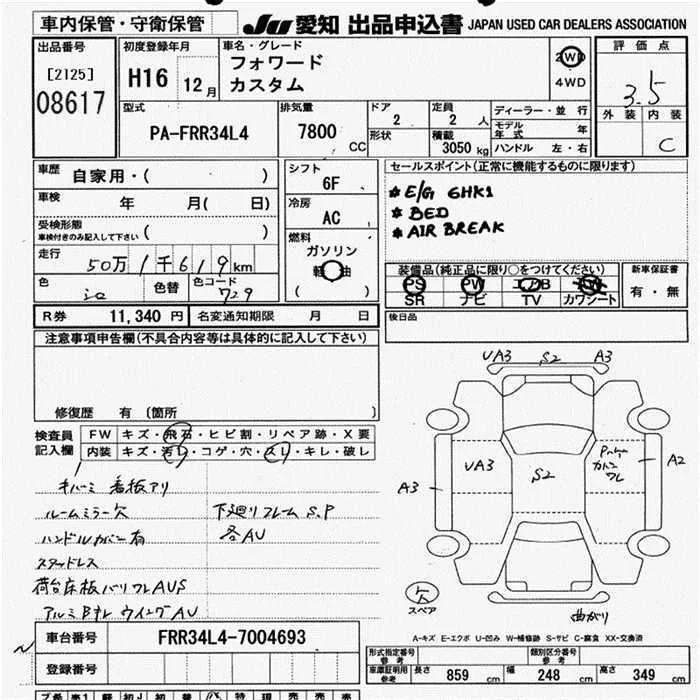 車内保管・守衛保管 JU 愛知 出品申込書 JAPAN USED CAR DEALERS ASSOCIATION
出品番号 初度登録年月 車名・グレード 評価点
[2125] H16 12月 フォワード 2WD
08617 カスタム 4WD 3.5
型式 排気量 ドア 定員 ディーラー・並行 外装 内装
PA-FRR34L4 7800 CC 2 2人 モデル年式 年 C
形状 積載 3050kg ハンドル 左・右
車歴 自家用・( ) シフト 6F セールスポイント(正常に機能するものに限ります)
車検 年 月( 日) 冷房 AC * E/G 6HK1
受検形態 車検付きのみ記入して下さい ( ) * BED
燃料 * AIR BREAK
走行 50万1千619km ガソリン 軽油 ( )
装備品(純正品に限り○をつけてください) 新車保証書
PS PW エアB AW 有・無
SR ナビ TV カワシート
色 色替 色コード 729
R券 11,340円 名変通知期限 月 日 後日品
注意事項申告欄(不具合内容等は具体的に記入して下さい)
修復歴 有 (箇所 )
検査員記入欄 FW キズ・飛石・ヒビ割・リペア跡・X要
内装 キズ・汚レ・コゲ・穴・スレ・キレ・破レ
UA3 S2 A3
キバーミ 看板アリ
ルームミラー欠 下廻りフレームS.P
ハンドルカバー有 各AU
スタッドレス
荷台床板バリフレAUS
アルミBナレ ウイングAU
UA3 S2 カトン ワレ A2
A3
欠 スペア 曲がり
A-キズ E-エクボ U-凹み W-補修跡 S-サビ C-腐食 XX-交換済
車台番号 FRR34L4-7004693
登録番号
形式指定番号 参考 類別区分番号 参考
車庫証明用 参考 長さ 859cm 幅 248cm 高さ 349cm